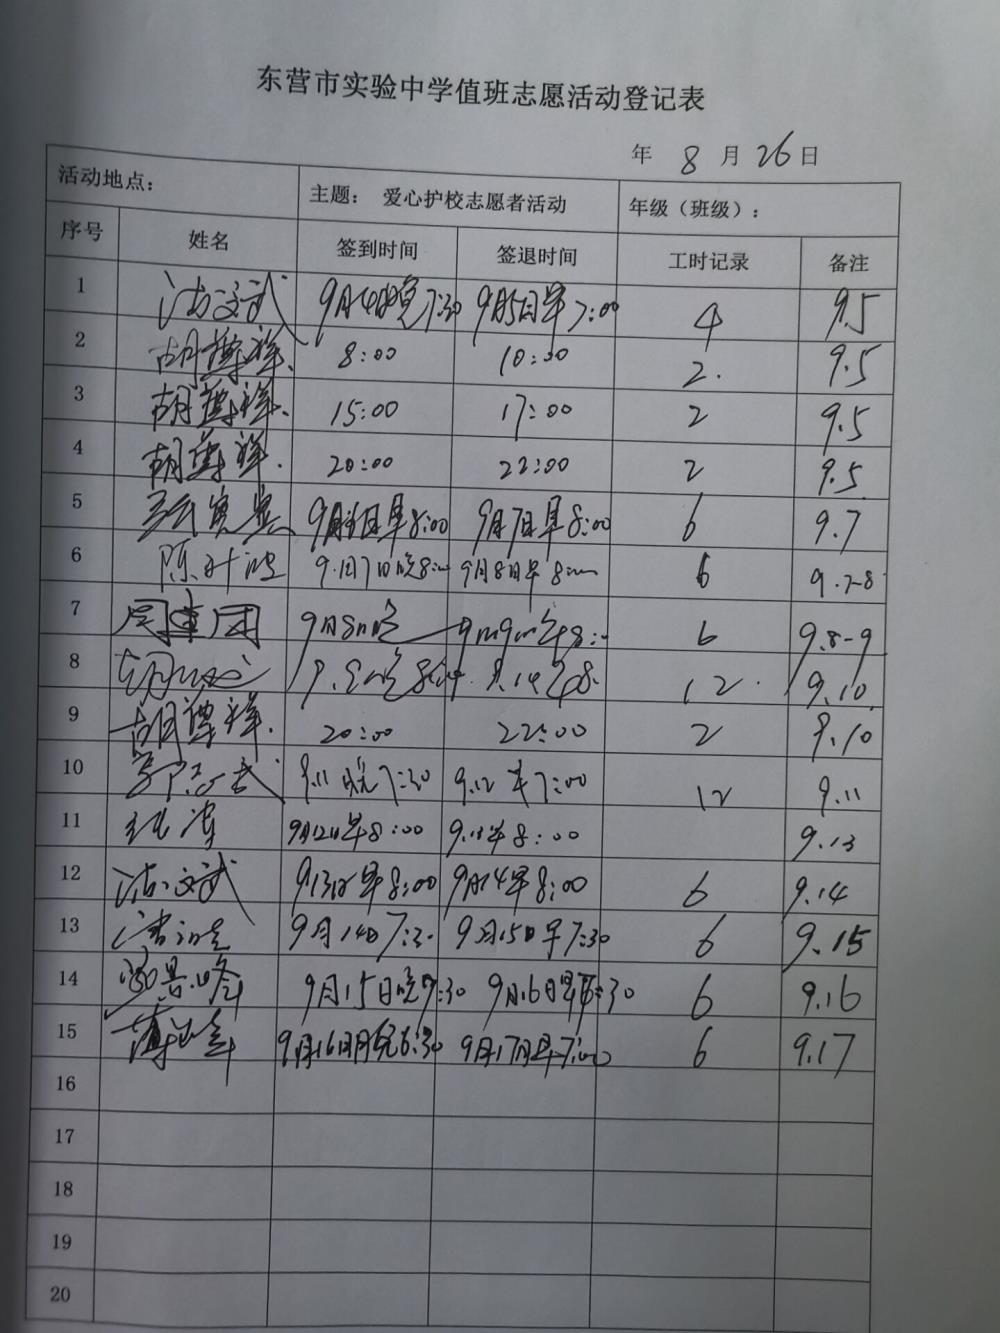 东营市实验中学值班志愿活动登记表
年 8 月 26 日
活动地点： 主题： 爱心护校志愿者活动 年级（班级）：
序号 姓名 签到时间 签退时间 工时记录 备注
1 9月4日晚7:30 9月5日早7:00 4 9.5
2 胡尊祥 8:00 10:00 2. 9.5
3 胡尊祥. 15:00 17:00 2 9.5
4 胡尊祥. 20:00 22:00 2 9.5
5 早8:00 9月7日早8:00 6 9.7
6 陈叶波 9月7日晚8:00 9月8日早8:00 6 9.7-8
7 9月8日晚 6 9.8-9
8 12. 9.10
9 胡尊祥. 20:00 22:00 2 9.10
10 9.11晚7:30 9.12早7:00 12 9.11
11 9月12日早8:00 9.13早8:00 9.13
12 9月13日早8:00 9月14早8:00 6 9.14
13 9月14日7:30 9月15日早7:30 6 9.15
14 9月15日晚7:30 9月16日早 :30 6 9.16
15 9月16日 晚6:30 9月17日早7:00 6 9.17
16
17
18
19
20